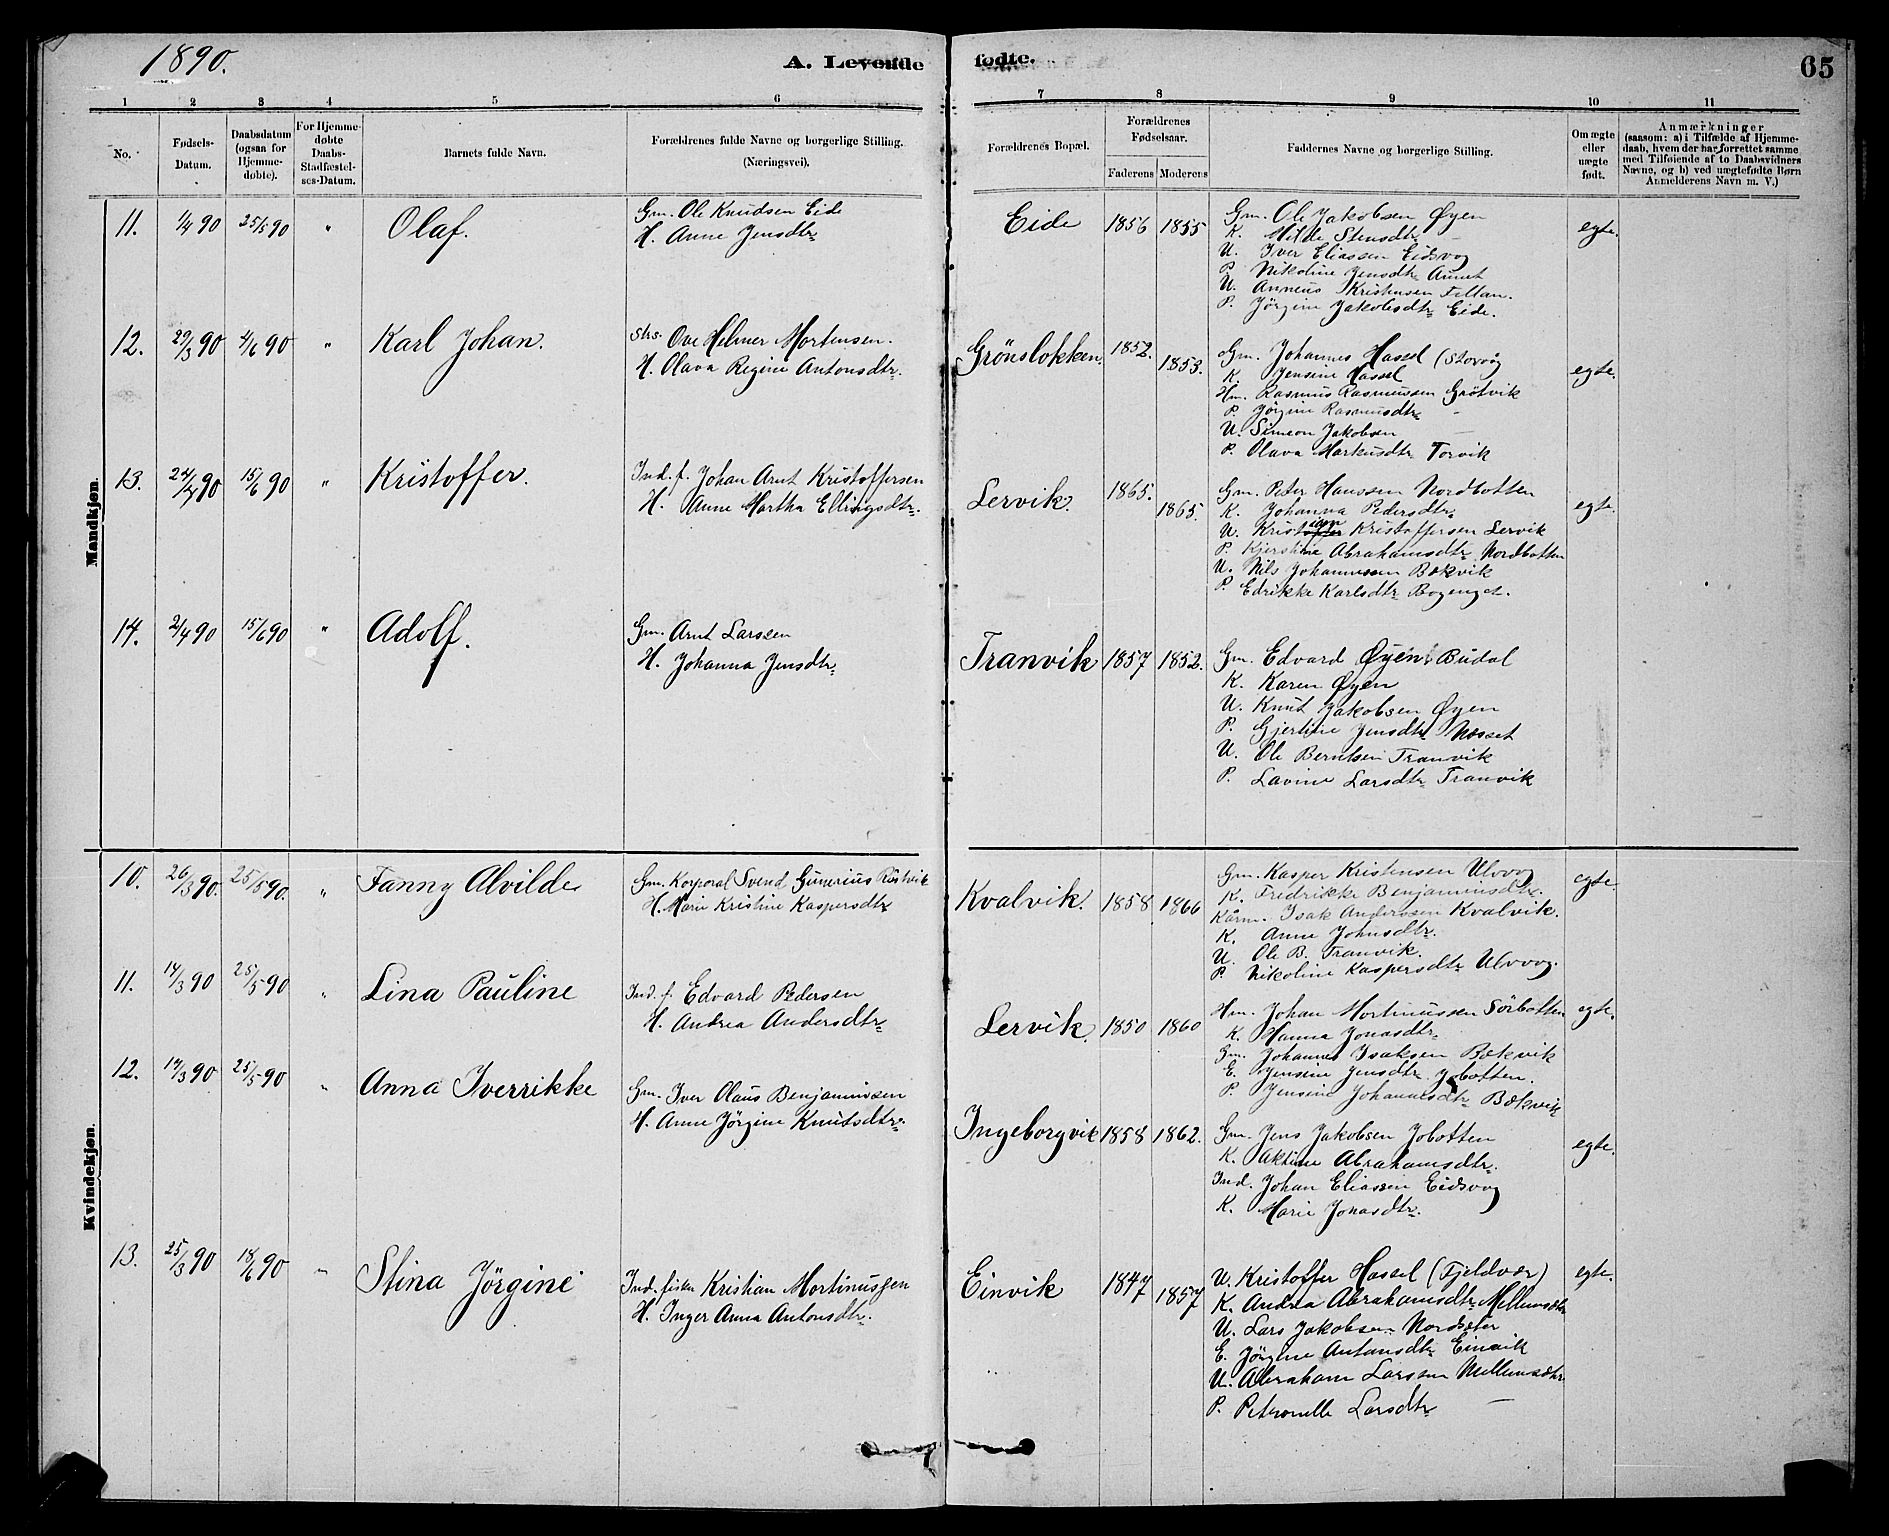 1890.
A. Levende fødte.
65
1 2 3 4 5 6 7 8 9 10 11
No.
Fødsels-Datum.
Daabsdatum (ogsaa for Hjemme-døbte).
For Hjemme-døbte Daabs-Stadfæstel-ses-Datum.
Barnets fulde Navn.
Forældrenes fulde Navne og borgerlige Stilling. (Næringsvei).
Forældrenes Bopæl.
Forældrenes Fødselsaar.
Faderens Moderens
Faddernes Navne og borgerlige Stilling.
Om ægte eller uægte født.
Anmærkninger
(saasom: a) i Tilfælde af Hjemme-
daab, hvem der har forrettet samme
med Tilføiende af to Daabsvidners
Navne, og b) ved uægtefødte Børn
Anmelderens Navn m. V.)
Mandkjøn.
11. 1/4 90 25/5 90 " Olaf.
Gm. Ole Knudsen Eide
H. Anne Jensdtr
Eide 1856 1855
Gm. Ole Jakobsen Øyen
K. Milde Stensdtr —
U. Iver Eliassen Eidsvog
P. Nikoline Jensdtr Aunet
U. Anneus Kristensen Fillan.
P. Jörgine Jakobsdtr Eide.
egte.
12. 29/3 90 4/6 90 " Karl Johan.
Strs. Ove Helmer Mortensen.
H. Olava Regine Antonsdtr.
Grönslokken 1852. 1853.
Gm. Johannes Hassel (Storvog
K. Jensine Hassel
Hm. Rasmus Rasmussen Grötvik
P. Jörgine Rasmusdtr —
U. Simeon Jakobsen —
P. Olava Markusdtr Torvik
egte.
13. 24/4 90 15/6 90 " Kristoffer.
Ind. f. Johan Arnt Kristoffersen
H. Anne Martha Ellingsdtr.
Lervik. 1865. 1865.
Gm. Peter Hanssen Nordbotten
K. Johanna Pedersdtr
U. Kristian Kristoffersen Lervik
P. Kjerstine Abrahamsdtr Nordbotten
U. Nils Johannessen Bækvik
P. Edrikke Karlsdtr Bogenget.
egte.
14. 2/4 90 15/6 90 " Adolf.
Gm. Arnt Larssen
H. Johanna Jensdtr
Tranvik 1857 1852.
Gm. Edvard Øyen Budal
K. Karen Øyen
U. Knut Jakobsen Øyen
P. Gjertine Jensdtr Næsset
U. Ole Berntsen Tranvik
P. Lavine Larsdtr Tranvik
Kvindekjøn.
10. 26/3 90. 25/5 90. " Fanny Alvilde
Gm. Korporal Svend Gunerius Röstvik
H. Marie Kristine Kaspersdtr
Kvalvik. 1858 1866
Gm. Kasper Kristensen Ulvvog
K. Fredrikke Benjaminsdtr.
Kårm. Isak Anderssen Kvalvik.
K. Anne Johnsdtr.
U. Ole B. Tranvik.
P. Nikoline Kaspersdtr Ulvvog.
egte.
11. 14/3 90 25/5 90 " Lina Pauline
Ind. f. Edvard Pedersen
H. Andrea Andersdtr
Lervik. 1850 1860
Hm. Johan Martinussen Sörbotten
K. Hanna Jonasdtr
Gm. Johannes Isaksen Bækvik
E. Jensine Jensdtr Jobotten.
P. Jensine Johannesdtr Bækvik
egte.
12. 14/3 90 25/5 90 " Anna Iverrikke
Gm. Iver Olaus Benjaminsen
H. Anne Jörgine Knutsdtr.
Ingeborgvik 1858 1862.
Gm. Jens Jakobsen Jobotten
K. Aktine Abrahamsdtr.
Ind. Johan Eliassen Eidsvog
K. Marie Jonasdtr.
egte.
13. 25/3 90 18/6 90 " Stina Jörgine
Ind. fisker Kristian Mortinussen
H. Inger Anna Antonsdtr.
Einvik 1847 1857
U. Kristoffer Hassel (Fjeldvær)
K. Andrea Abrahamsdtr Mellemsæter
U. Lars Jakobsen Nordsæter
E. Jörgine Antonsdtr Einvik
U. Abraham Larssen Mellemsæter
P. Petronelle Larsdtr —
egte.